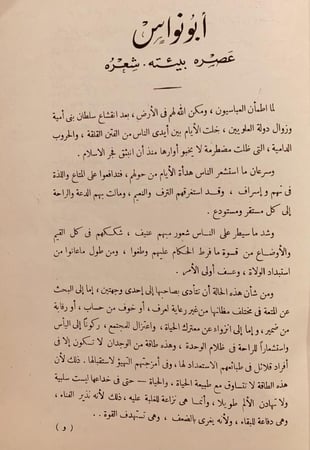 أبو نواس
عَصِره بيئته . شِعْرُه
لما اطمأن العباسيون ، ومكن الله لهم فى الأرض ، بعد انقشاع سلطان بنى أمية
وزوال دولة العلويين ، خلت الأيام بين أيدى الناس من الفتن القلقة ، والحروب
الدامية ، التى ظلت مضطرمة لا يخبو أوارها منذ أن انبثق فجر الاسلام .
وسرعان ما استشعر الناس هدأة الأيام من حولهم ، فتدافعوا على المتاع واللذة
فى نهم وإسراف ، وقد استغرقهم الترف والنعيم ، ومالت بهم الدعة والراحة
إلى كل مستقر ومستودع .
وشد ما سيطر على الناس شعور بهم عنيف ، شككهم فى كل القيم
والأوضاع من قسوة ما فرط الحكام عليهم وطغوا ، ومن طول ما عانوا من
استبداد الولاة ، وعسف أولى الأمر .
ومن شأن هذه الحالة أن تتأدى بصاحبها إلى إحدى وجهتين ، إما إلى البحث
عن المتعة فى مختلف مظانها من غير رعاية لعرف ، أو خوف من حساب ، أو رقابة
من ضمير ، و إما إلى انزواء عن معترك الحياة ، واعتزال للمجتمع ، ركونًا إلى اليأس
واستشعارًا للراحة فى ظلام الوحدة ، وهذه طاقة من الوجدان لا تكون إلا فى
أفراد قلائل فى طبائعهم الاستعداد لها ، وفى أمزجتهم التهيؤ لاستقبالها . ذلك لأن
هذه الطاقة لا تتساوق مع طبيعة الحياة . والحياة — حتى فى خداعها ليست سلبية
ولا تهادن الألم طويلا ، وأنما هى نزاعة للغلبة عليه ، ذلك لأنه نذير الفناء ،
وهى دفاعة للبقاء ، ولأنه يغرى بالضعف ، وهى تستهدف القوة . .
( و )